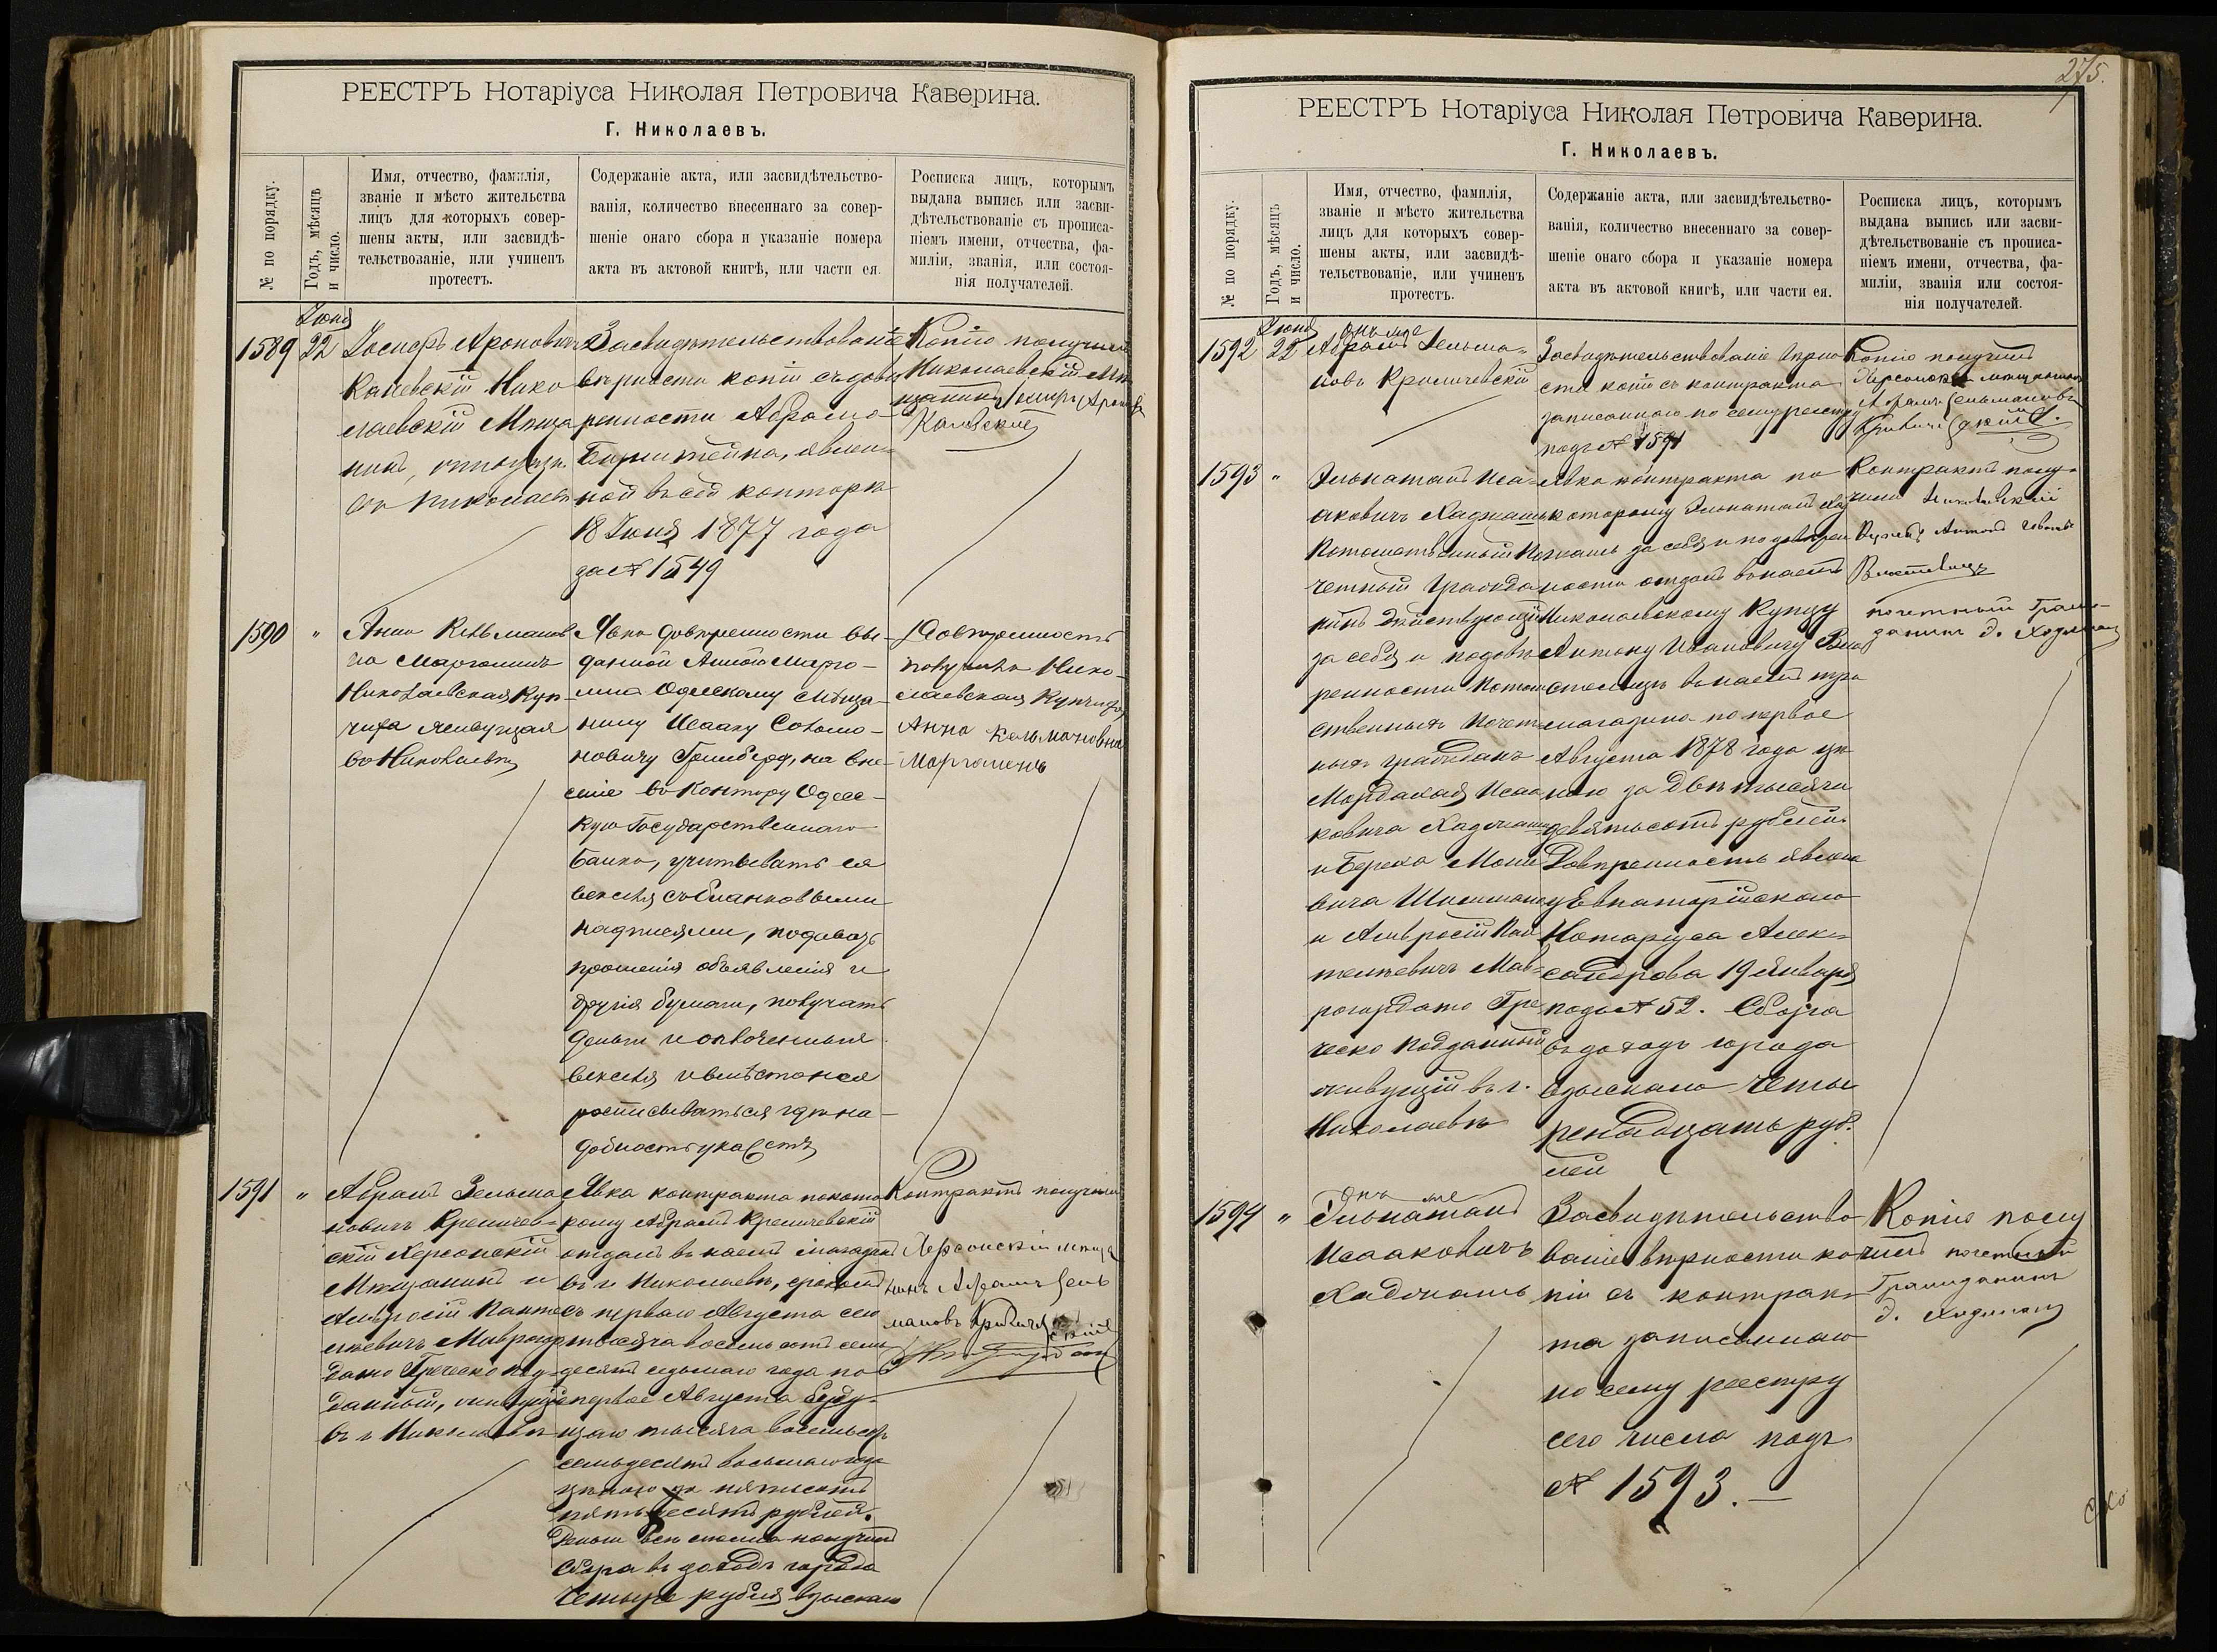 РЕЕСТРЪ Нотаріуса Николая Петровича Каверина.
Г. Николаевъ.
№ по порядку.
Годъ, мѣсяцъ
и число.
Имя, отчество, фамилія,
званіе и мѣсто жительства
лицъ для которыхъ совер-
шены акты, или засвидѣ-
тельствованіе, или учиненъ
протестъ.
Содержаніе акта, или засвидѣтельство-
ванія, количество внесеннаго за совер-
шеніе онаго сбора и указаніе номера
акта въ актовой книгѣ, или части ея.
Росписка лицъ, которымъ
выдана выпись или засви-
дѣтельствованіе съ прописа-
ніемъ имени, отчества, фа-
миліи, званія, или состоя-
нія получателей.
Іюня
1589 22
Іосифъ Ароновичъ
Каневскій Нико
лаевскій Мѣща
нинъ,
въ Николаевѣ
Засвидѣтельствованіе
вѣрности копіи съ довѣ
ренности Абрама
Бернштейна, явлен-
ной въ сей конторѣ
18 Іюня 1877 года
за № 1549
Копію получилъ
Николаевскій Мѣ
щанинъ Іосифъ Аронов
Каневскій
1590 "
Анна Кельманов
на Марголинъ
Николаевская Куп-
чиха живущая
въ Николаевѣ
Явка довѣренности вы-
данной Анною Марго-
лина Одесскому Мѣща-
нину Исааку Соломо-
новичу Гринберг, на вне-
сеніе въ Контору Одесс-
кую Государственнаго
Банка, учитывать ея
векселя съ бланковыми
надписями, подавать
прошенія объявленія и
другія бумаги, получать
деньги и оплоченныя
векселя и вмѣсто нея
росписываться гдѣ на-
добность укажетъ
Довѣренность
получила Нико-
лаевская Купчиха
Анна Кельмановна
Марголинъ
1591 "
Абрамъ Зельма
новичъ Кремичев-
скій Херсонскій
Мѣщанинъ и
Амвросій Панте
леевичъ Маврогор
дато Греческо под-
данный, живущіе
въ г Николаевѣ
Явка контракта по кото
рому Абрамъ Кремичевскій
отдалъ въ наемъ магазинъ
въ г Николаевѣ, срокомъ
съ перваго Августа сего
тысяча восемьсотъ семь
десятъ седьмаго года по
первое Августа буду-
щаго тысяча восемьсотъ
семьдесятъ восьмаго года
цѣною за пятьсотъ
пятьдесятъ рублей.
Деньги всѣ сполна получилъ
Сбора въ доходъ города
четыре рубля взыскано
Контрактъ получилъ
Херсонскій мѣща
нинъ Абрамъ Зель
мановъ
РЕЕСТРЪ Нотаріуса Николая Петровича Каверина.
Г. Николаевъ.
275.
№ по порядку.
Годъ, мѣсяцъ
и число.
Имя, отчество, фамилія,
званіе и мѣсто жительства
лицъ для которыхъ совер-
шены акты, или засвидѣ-
тельствованіе, или учиненъ
протестъ.
Содержаніе акта, или засвидѣтельство-
ванія, количество внесеннаго за совер-
шеніе онаго сбора и указаніе номера
акта въ актовой книгѣ, или части ея.
Росписка лицъ, которымъ
выдана выпись или засви-
дѣтельствованіе съ прописа-
ніемъ имени, отчества, фа-
миліи, званія или состоя-
нія получателей.
Іюня
1592 22
онъ же
Абрамъ Зельма-
новъ Кремичевскій
Засвидѣтельствованіе вѣрно
сти копіи съ контракта
записаннаго по сему реестру
подъ № 1591
Копію получилъ
Херсонскій мѣщанинъ
Абрамъ Зельмановъ
1593 "
Эльнатанъ Иса-
аковичъ Хаджашъ
Потомственный По
четный Гражда
нинъ дѣйствующій
за себя и по довѣ
ренности Потом
ственныхъ Почет
ныхъ гражданъ
Мордахая Исаа
ковича Хаджаша
и Береха Мои
вича Шишмана
и Амвросій Пан
телеевичъ Мав-
рогордато Гре
ческо подданный
живущій въ г.
Николаевѣ
Явка контракта по
которому Эльнатанъ Ха
джашъ за себя и по довѣрен
ности отдалъ въ наемъ
Николаевскому Купцу
Антону Ивановичу Вла
стелица въ наемъ три
магазина по первое
Августа 1878 года цѣ
ною за двѣ тысячи
девятьсотъ рублей.
Довѣренность явлена
у Евпаторійскаго
Нотаріуса Алек-
сандрова 19 Января
подъ № 52. Сбора
въ доходъ города
взыскано четы
рнадцать руб.
лей
Контрактъ полу-
чилъ Николаевскій
Купецъ Антонъ Ивановъ
почетный Граж-
данинъ Э. Хаджашъ
1594 "
Онъ же
Эльнатанъ
Исааковичъ
Хаджашъ
Засвидѣтельство
ваніе вѣрности ко
піи съ контрак-
та записаннаго
по сему реестру
сего числа подъ
№ 1593. —
Копію полу
чилъ почетный
Гражданинъ
Э. Хаджашъ